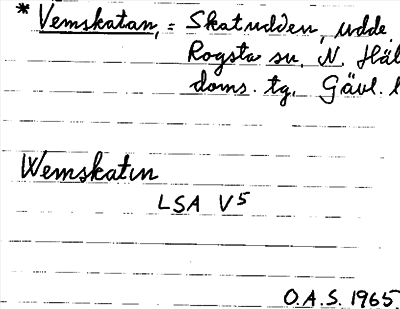 * Vemskatan, = Skatudden, udde
Rogsta sn. N. Häl
doms. tg. Gävl. l
Wemskatın
LSA V5
O.A.S. 1965.